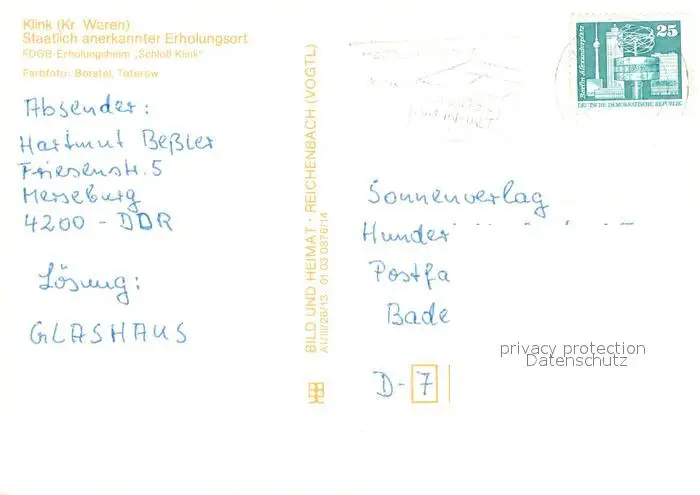 Klink (Kr. Waren)
Staatlich anerkannter Erholungsort
FDGB-Erholungsheim „Schloß Klink"
Farbfoto: Borstel, Teterow
Absender:
Hartmut Beßler
Friesenstr. 5
Merseburg
4200 - DDR
Lösung:
GLASHAUS
BILD UND HEIMAT · REICHENBACH (VOGTL)
A1/III/26/13 01 03 0376/14
25
Berlin, Alexanderplatz
DEUTSCHE DEMOKRATISCHE REPUBLIK
Sonnenverlag
Hunder
Postfa
Bade
privacy protection
Datenschutz
D-7